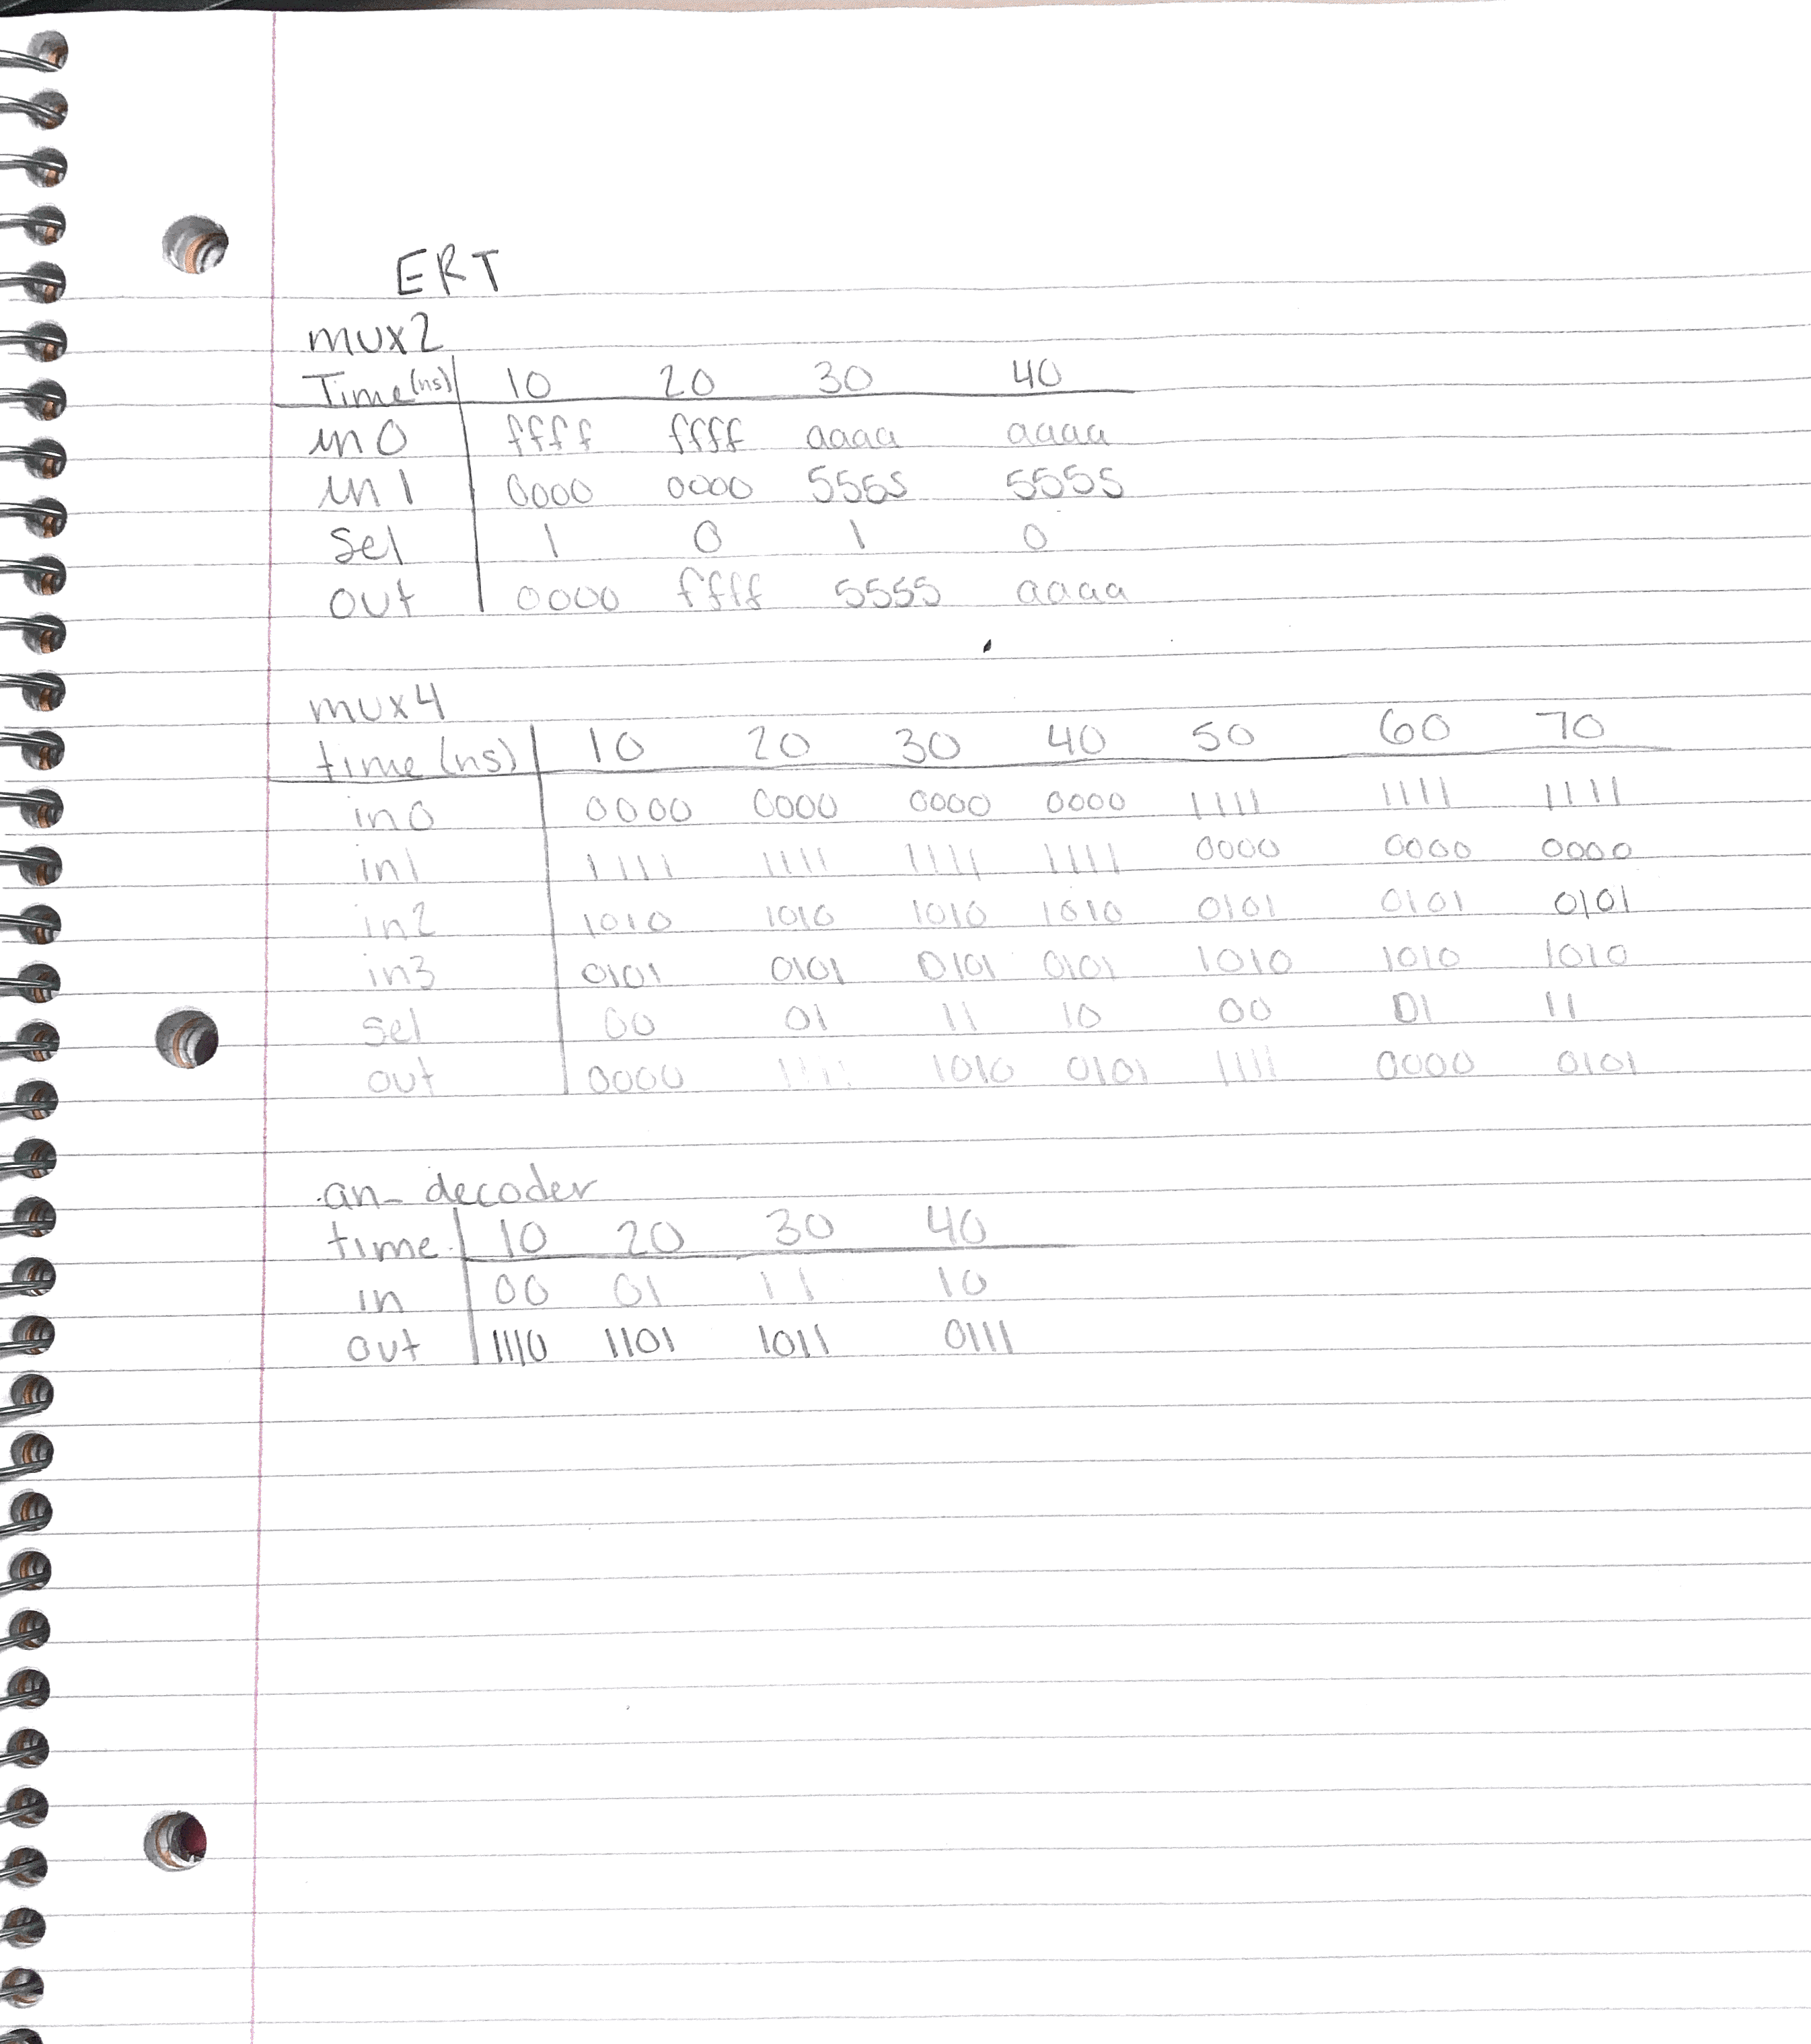 ERT
mux2
Time(ns) 10 20 30 40
in0 ffff ffff aaaa aaaa
in1 0000 0000 5555 5555
Sel 1 0 1 0
out 0000 ffff 5555 aaaa
mux4
time (ns) 10 20 30 40 50 60 70
in0 0000 0000 0000 0000 1111 1111 1111
in1 1111 1111 1111 1111 0000 0000 0000
in2 1010 1010 1010 1010 0101 0101 0101
in3 0101 0101 0101 0101 1010 1010 1010
sel 00 01 11 10 00 01 11
out 0000 1111 1010 0101 1111 0000 0101
an_decoder
time 10 20 30 40
in 00 01 11 10
out 1110 1101 1011 0111